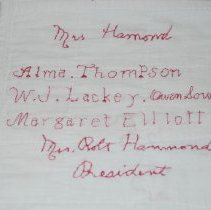 Mrs Hamond
Alma. Thompson
W.J. Lackey. Owen Sou
Margaret Elliott
Mrs. Robt Hammond
President